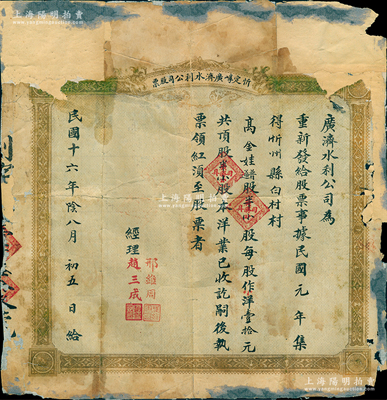 上海陽明拍賣
WWW.YMPM.COM
忻定崞廣濟水利公司股票
廣濟水利公司為
重新發給股票事據民國元年集
得忻州縣白村村
高金娃 股 每股作洋壹拾元
共頂股 股本洋業已收訖嗣後執
票領紅湏至股票者
經理
邢
趙三成
民國十六年陰八月初五日給
上海陽明拍賣